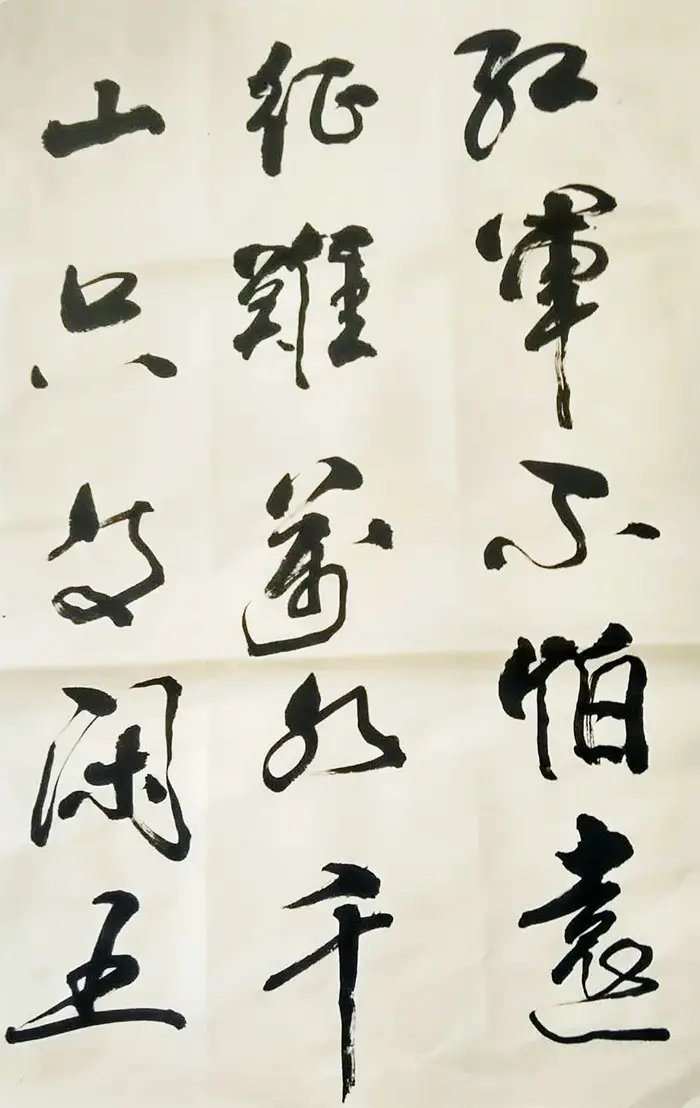 红軍不怕遠
征難萬水千
山只等闲五